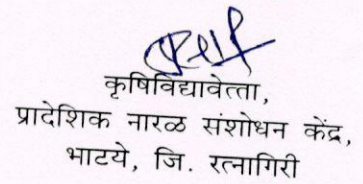 कृषिविद्यावेत्ता,
प्रादेशिक नारळ संशोधन केंद्र,
भाटये, जि. रत्नागिरी